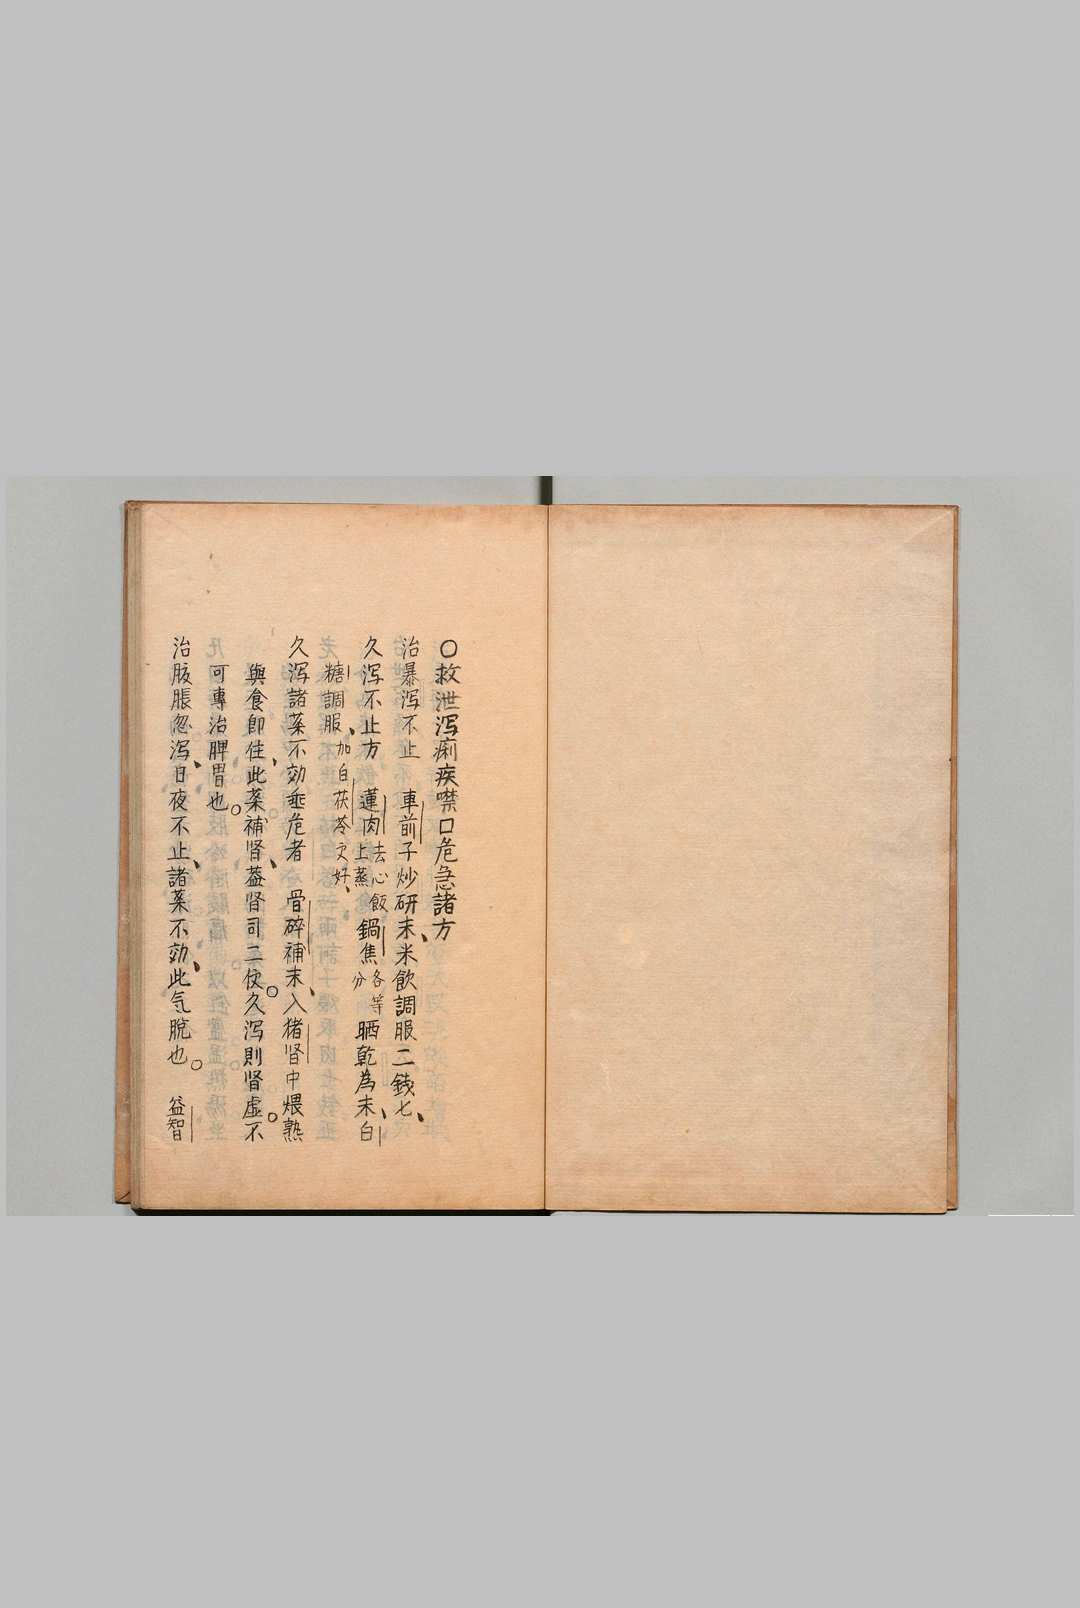 ○救泄泻痢疾噤口危急諸方
治暴泻不止　車前子炒研末、米飲調服二錢七、
久泻不止方　蓮肉去心上蒸飯鍋焦各等分晒乾為末、白
糖調服、加白茯苓更好、
久泻諸薬不効垂危者　骨碎補末、入猪肾中煨熟
與食即住、此薬補肾、葢肾司二便。久泻則肾虚。不
可專治脾胃也。
治腹脹忽泻、日夜不止、諸薬不効、此気脫也。　益智